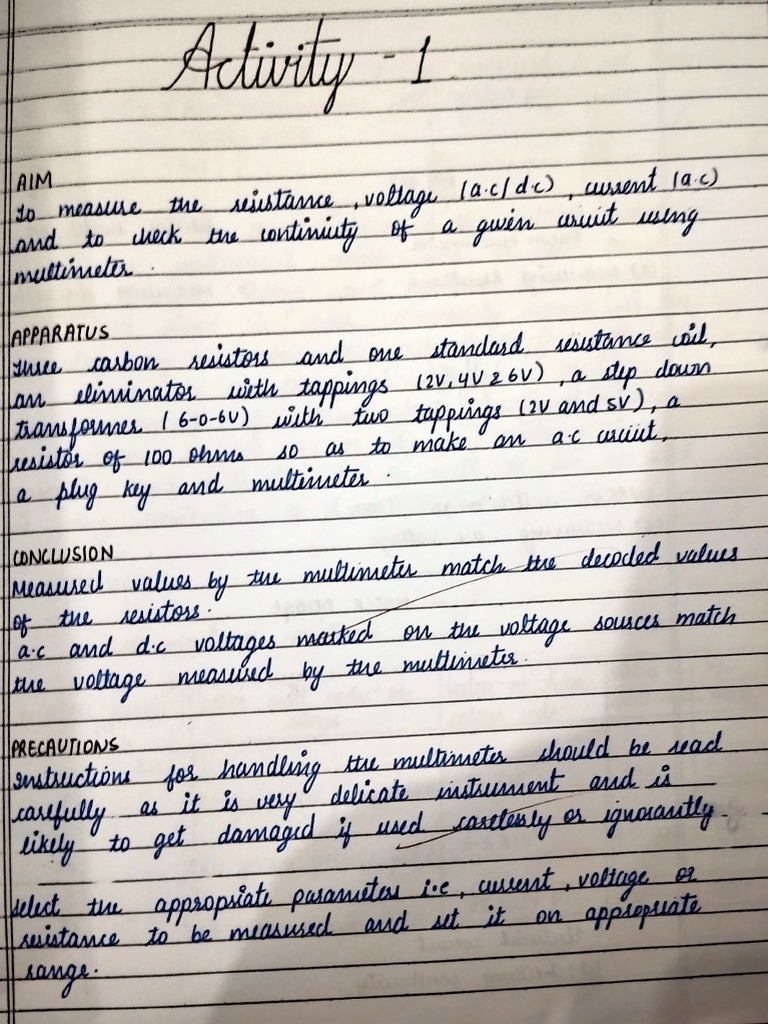 Activity - 1
AIM
to measure the resistance, voltage (a.c/d.c), current (a.c)
and to check the continuity of a given circuit using
multimeter.
APPARATUS
three carbon resistors and one standard resistance coil,
an eliminator with tappings (2V, 4V & 6V), a step down
transformer (6-0-6V) with two tappings (2V and 5V), a
resistor of 100 ohms so as to make an a.c circuit,
a plug key and multimeter.
CONCLUSION
Measured values by the multimeter match the decoded values
of the resistors.
a.c and d.c voltages marked on the voltage sources match
the voltage measured by the multimeter.
PRECAUTIONS
Instructions for handling the multimeter should be read
carefully as it is very delicate instrument and is
likely to get damaged if used carelessly or ignorantly.
select the appropriate parameters i.e, current, voltage or
resistance to be measured and set it on appropriate
range.